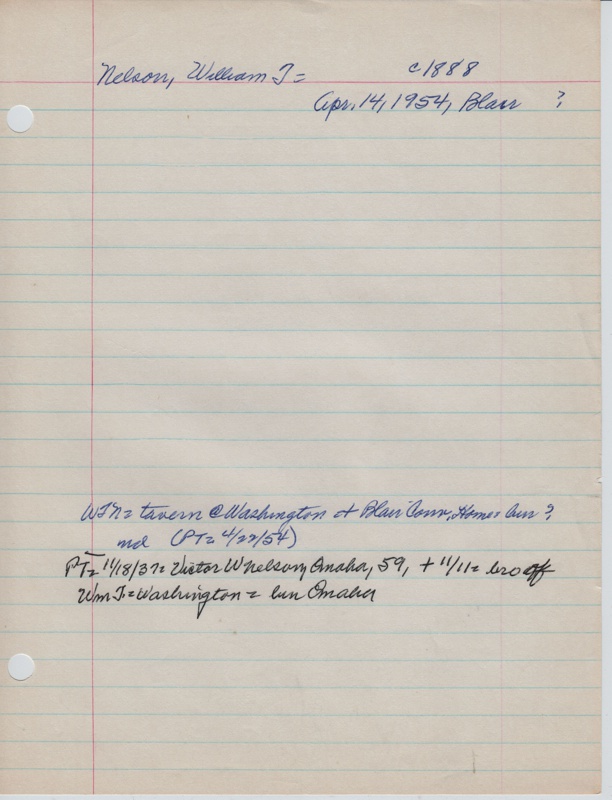 Nelson, William T= c1888
Apr. 14, 1954, Blair ?
WTN= tavern @ Washington + Blair Conv. Home= bur ?
nd (PT= 4/22/54)
PT= 11/18/37= Victor W Nelson, Omaha, 59, + 11/11= bro of
Wm T= Washington = bur Omaha